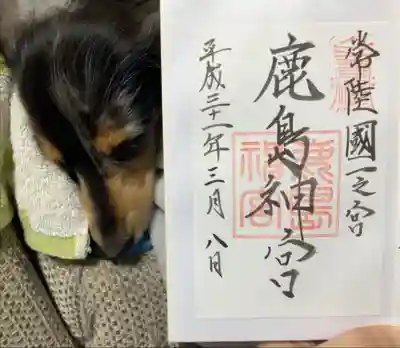 常陸國一之宮
鹿島神宮
鹿島神宮
平成三十一年三月八日